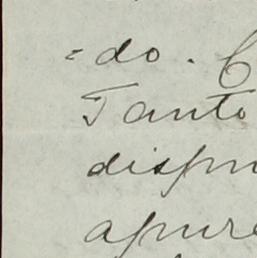 =do. C
Tanto
dispu
apure